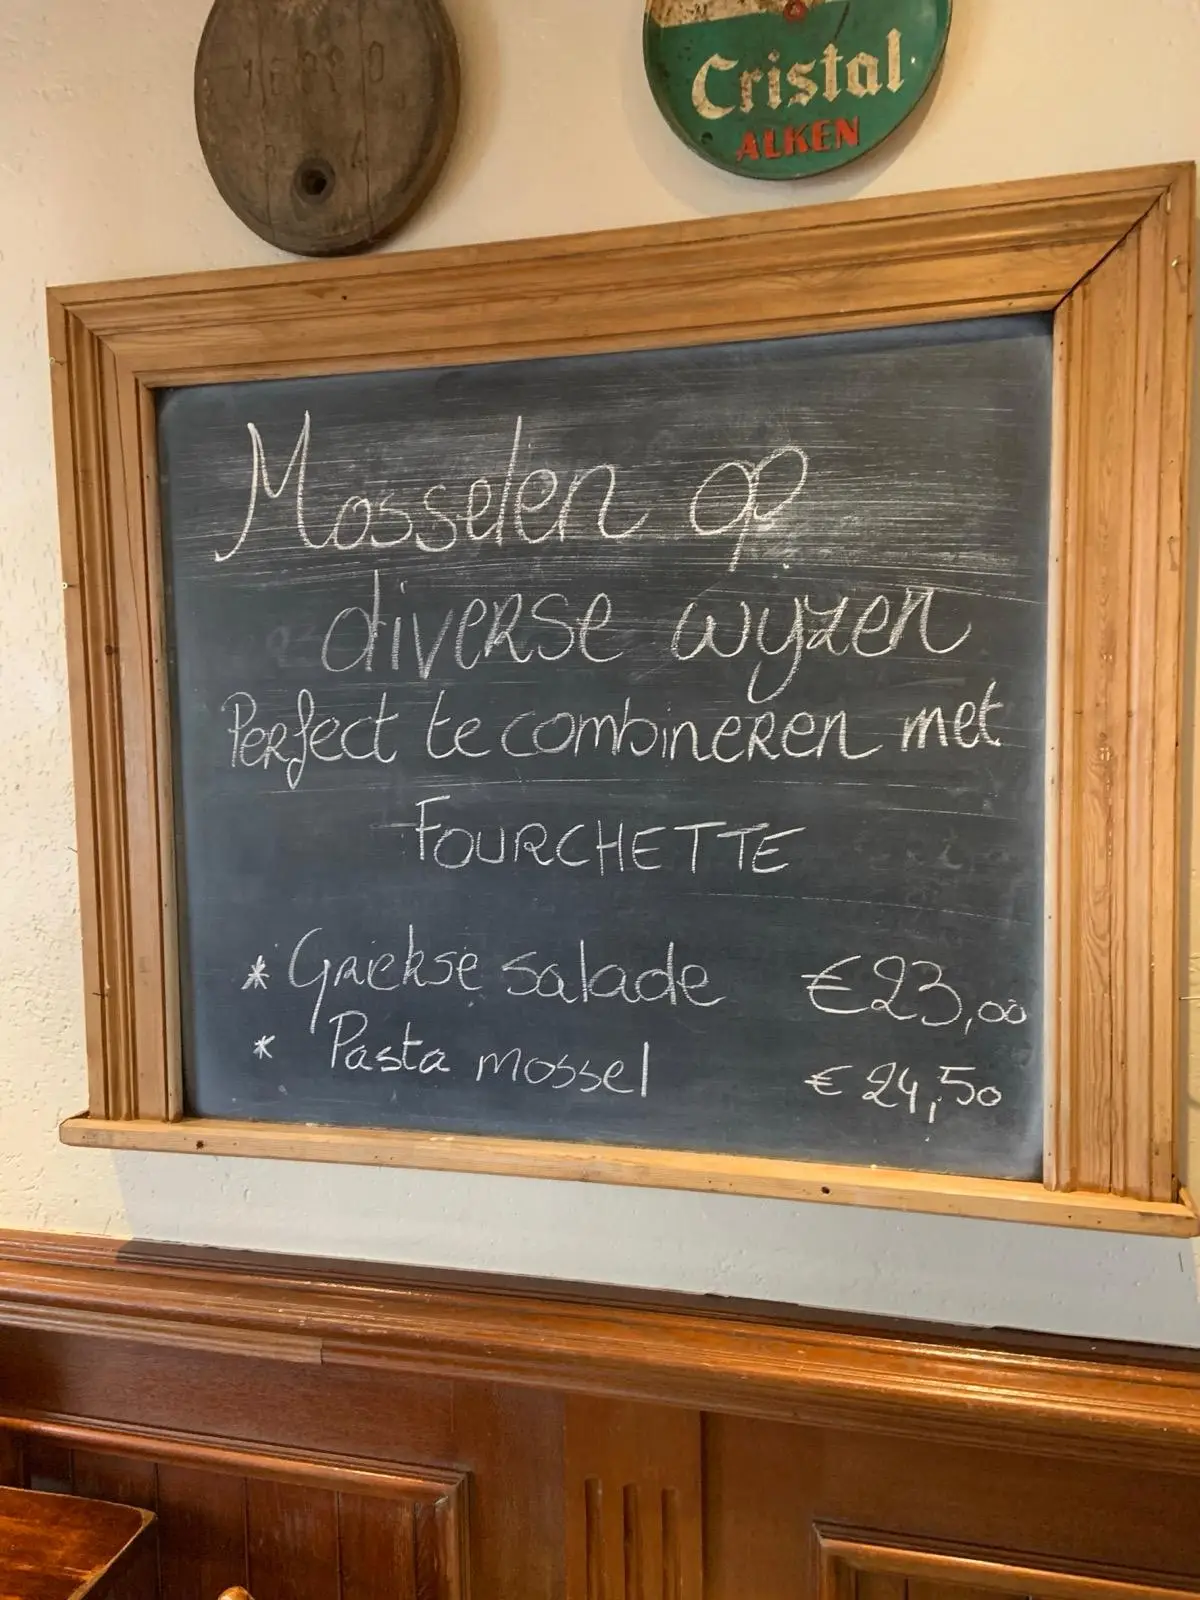 Cristal
ALKEN
Mosselen op
diverse wyzen
Perfect te combineren met
FOURCHETTE
* Griekse salade €23,00
* Pasta mossel €24,50